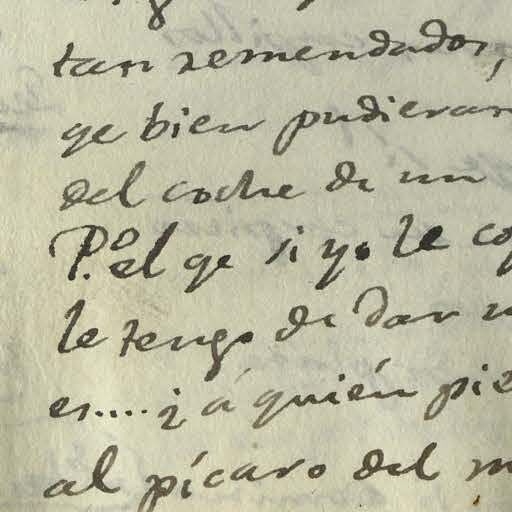 tan remendados,
qe bien pudieran
del coche de un
P.º el qe si yo le co
le tengo de dar u
es.... ¿á quién pie
al pícaro del m